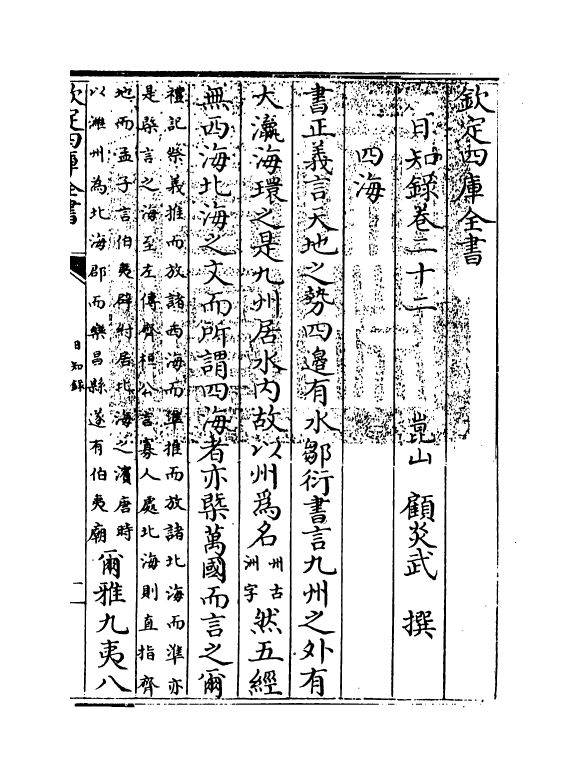 欽定四庫全書
日知錄卷二十二
崑山 顧炎武 撰
四海
書正義言天地之勢四邉有水鄒衍書言九州之外有
大瀛海環之是九州居水内故以州為名
州古
洲字
然五經
無西海北海之文而所謂四海者亦槩萬國而言之爾
禮記祭義推而放諸西海而凖推而放諸北海而準亦
是槩言之海至左傳齊桓公言寡人處北海則直指齊
地而孟子言伯夷辟紂居北海之濱唐時
以濰州為北海郡而樂昌縣遂有伯夷廟
爾雅九夷八
欽定四庫全書
日知錄
一